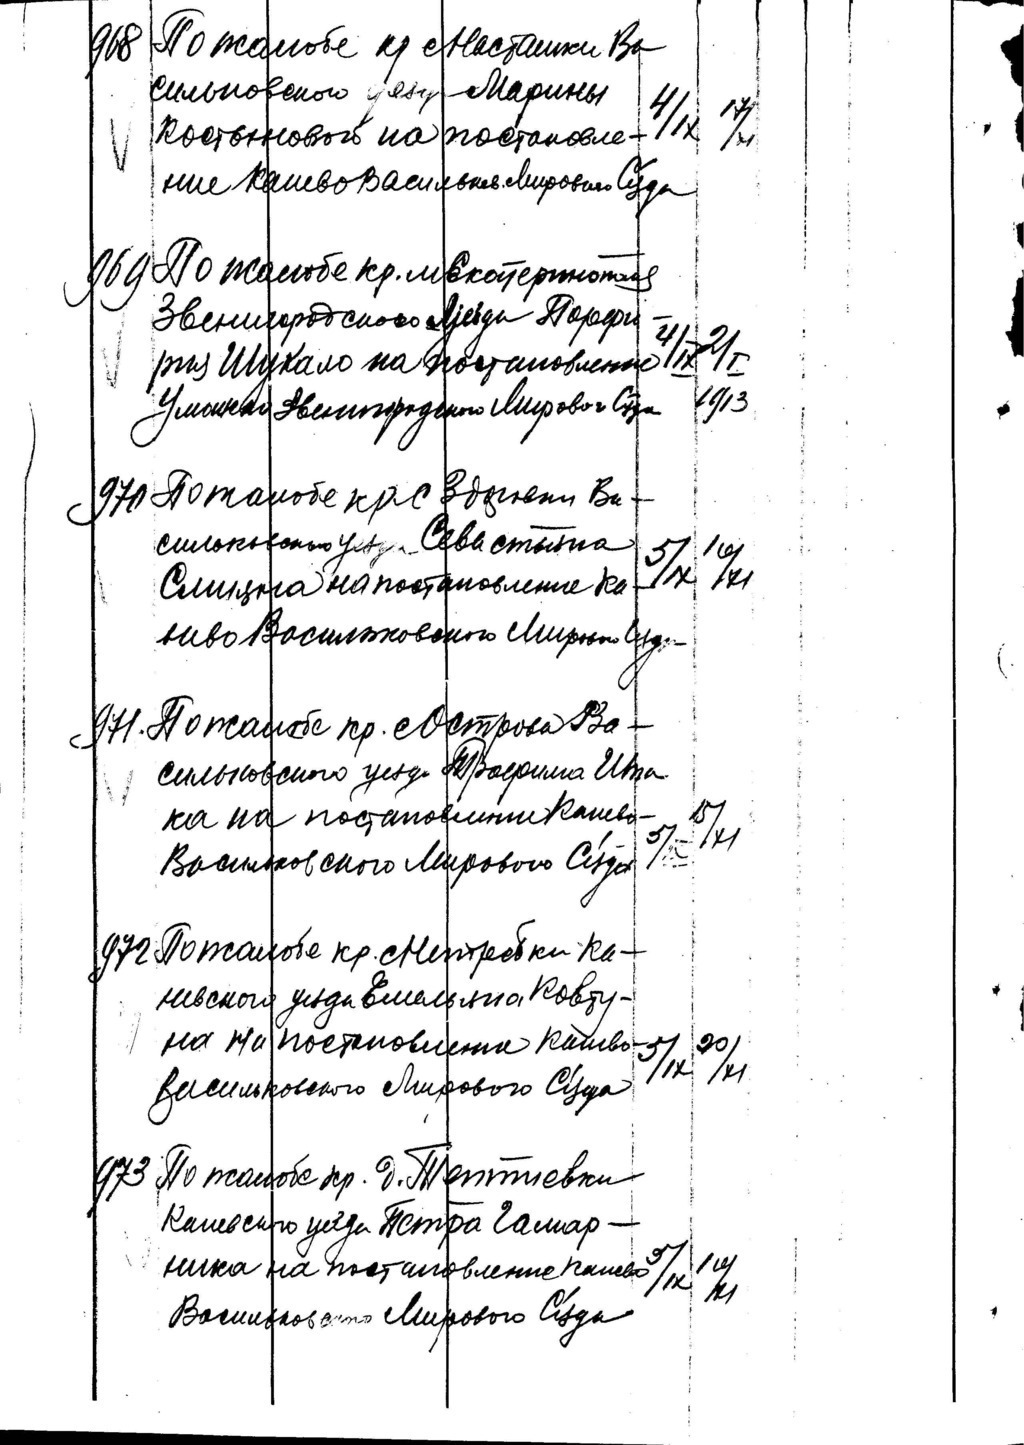 968 По жалобе кр с Насташки Ва-
сильковского уезд Марины
Костьяновой на постановле- 4/IX 17/XI
ние Канево Васильков. Мирового Сѣзда
969 По жалобе кр. м Екатеринополя
Звенигородского Уѣзда Порфи-
рия Шукало на постановление 4/IX 2/I
Уманско Звенигородского Мирового Сѣзда 1913
970 По жалобе кр с Здоговки Ва-
сильковского уезда Севастьяна
на постановление Ка- 5/IX 16/XI
нево Васильковского Мирового Сѣзда
971. По жалобе кр. с Острова Ва-
сильковского уезда Трофима Ища
ка на постановление Канево- 15/XI
Васильковского Мирового Сѣзда 5/IX
972 По жалобе кр. с Нетребки Ка-
невского уезда Емельяна Ковту-
на на постановление Канево- 5/IX 20/XI
Васильковского Мирового Сѣзда
973 По жалобе кр. д. Тептиевки
Каневского уезда Петра Гамар-
ника на постановление Канево 5/IX 16/XI
Васильковского Мирового Сѣзда